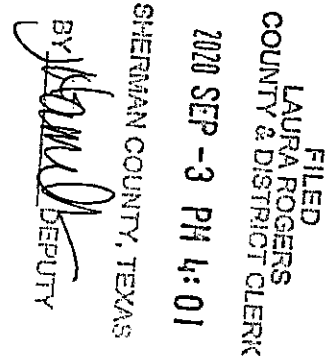 FILED
LAURA ROGERS
COUNTY & DISTRICT CLERK
2020 SEP -3 PM 4:01
SHERMAN COUNTY, TEXAS
BY DEPUTY